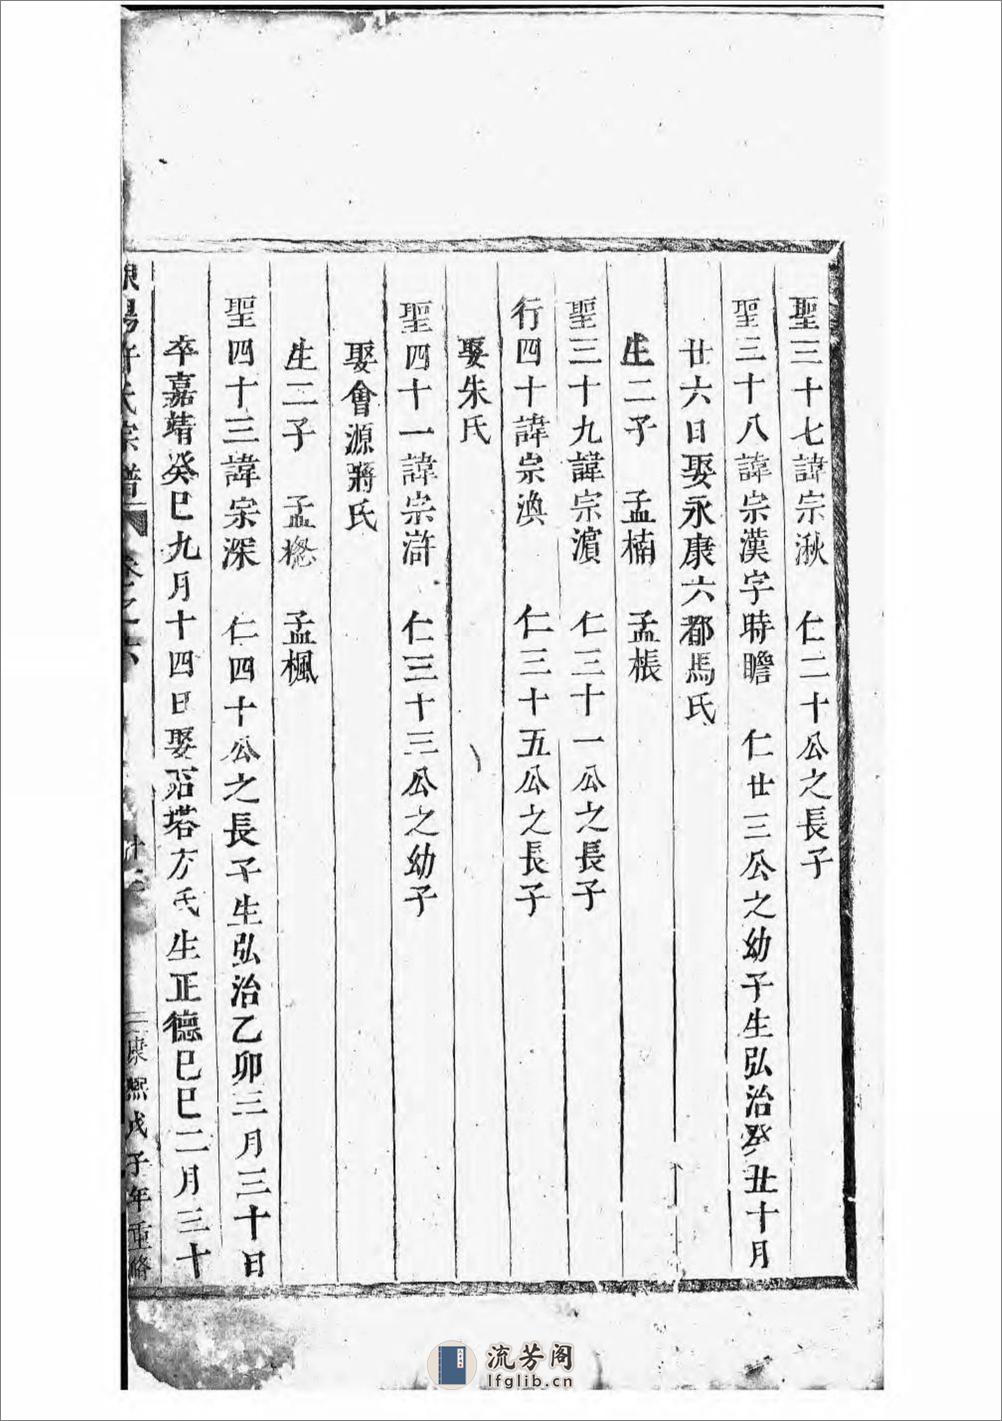 聖三十七諱宗湫　仁二十公之長子
聖三十八諱宗漢字時瞻　仁廿三公之幼子生弘治癸丑十月
廿六日娶永康六都馬氏
生二子　孟楠　孟棖
聖三十九諱宗濵　仁三十一公之長子
行四十諱宗渙　仁三十五公之長子
娶朱氏
聖四十一諱宗滸　仁三十三公之幼子
娶會源蔣氏
生二子　孟　孟楓
聖四十三諱宗深　仁四十公之長子生弘治乙卯三月三十日
卒嘉靖癸巳九月十四日娶石塔方氏生正德己巳二月三十
陽許氏宗譜　卷之六　康熙戊子年重脩
流芳阁
lfglib.cn